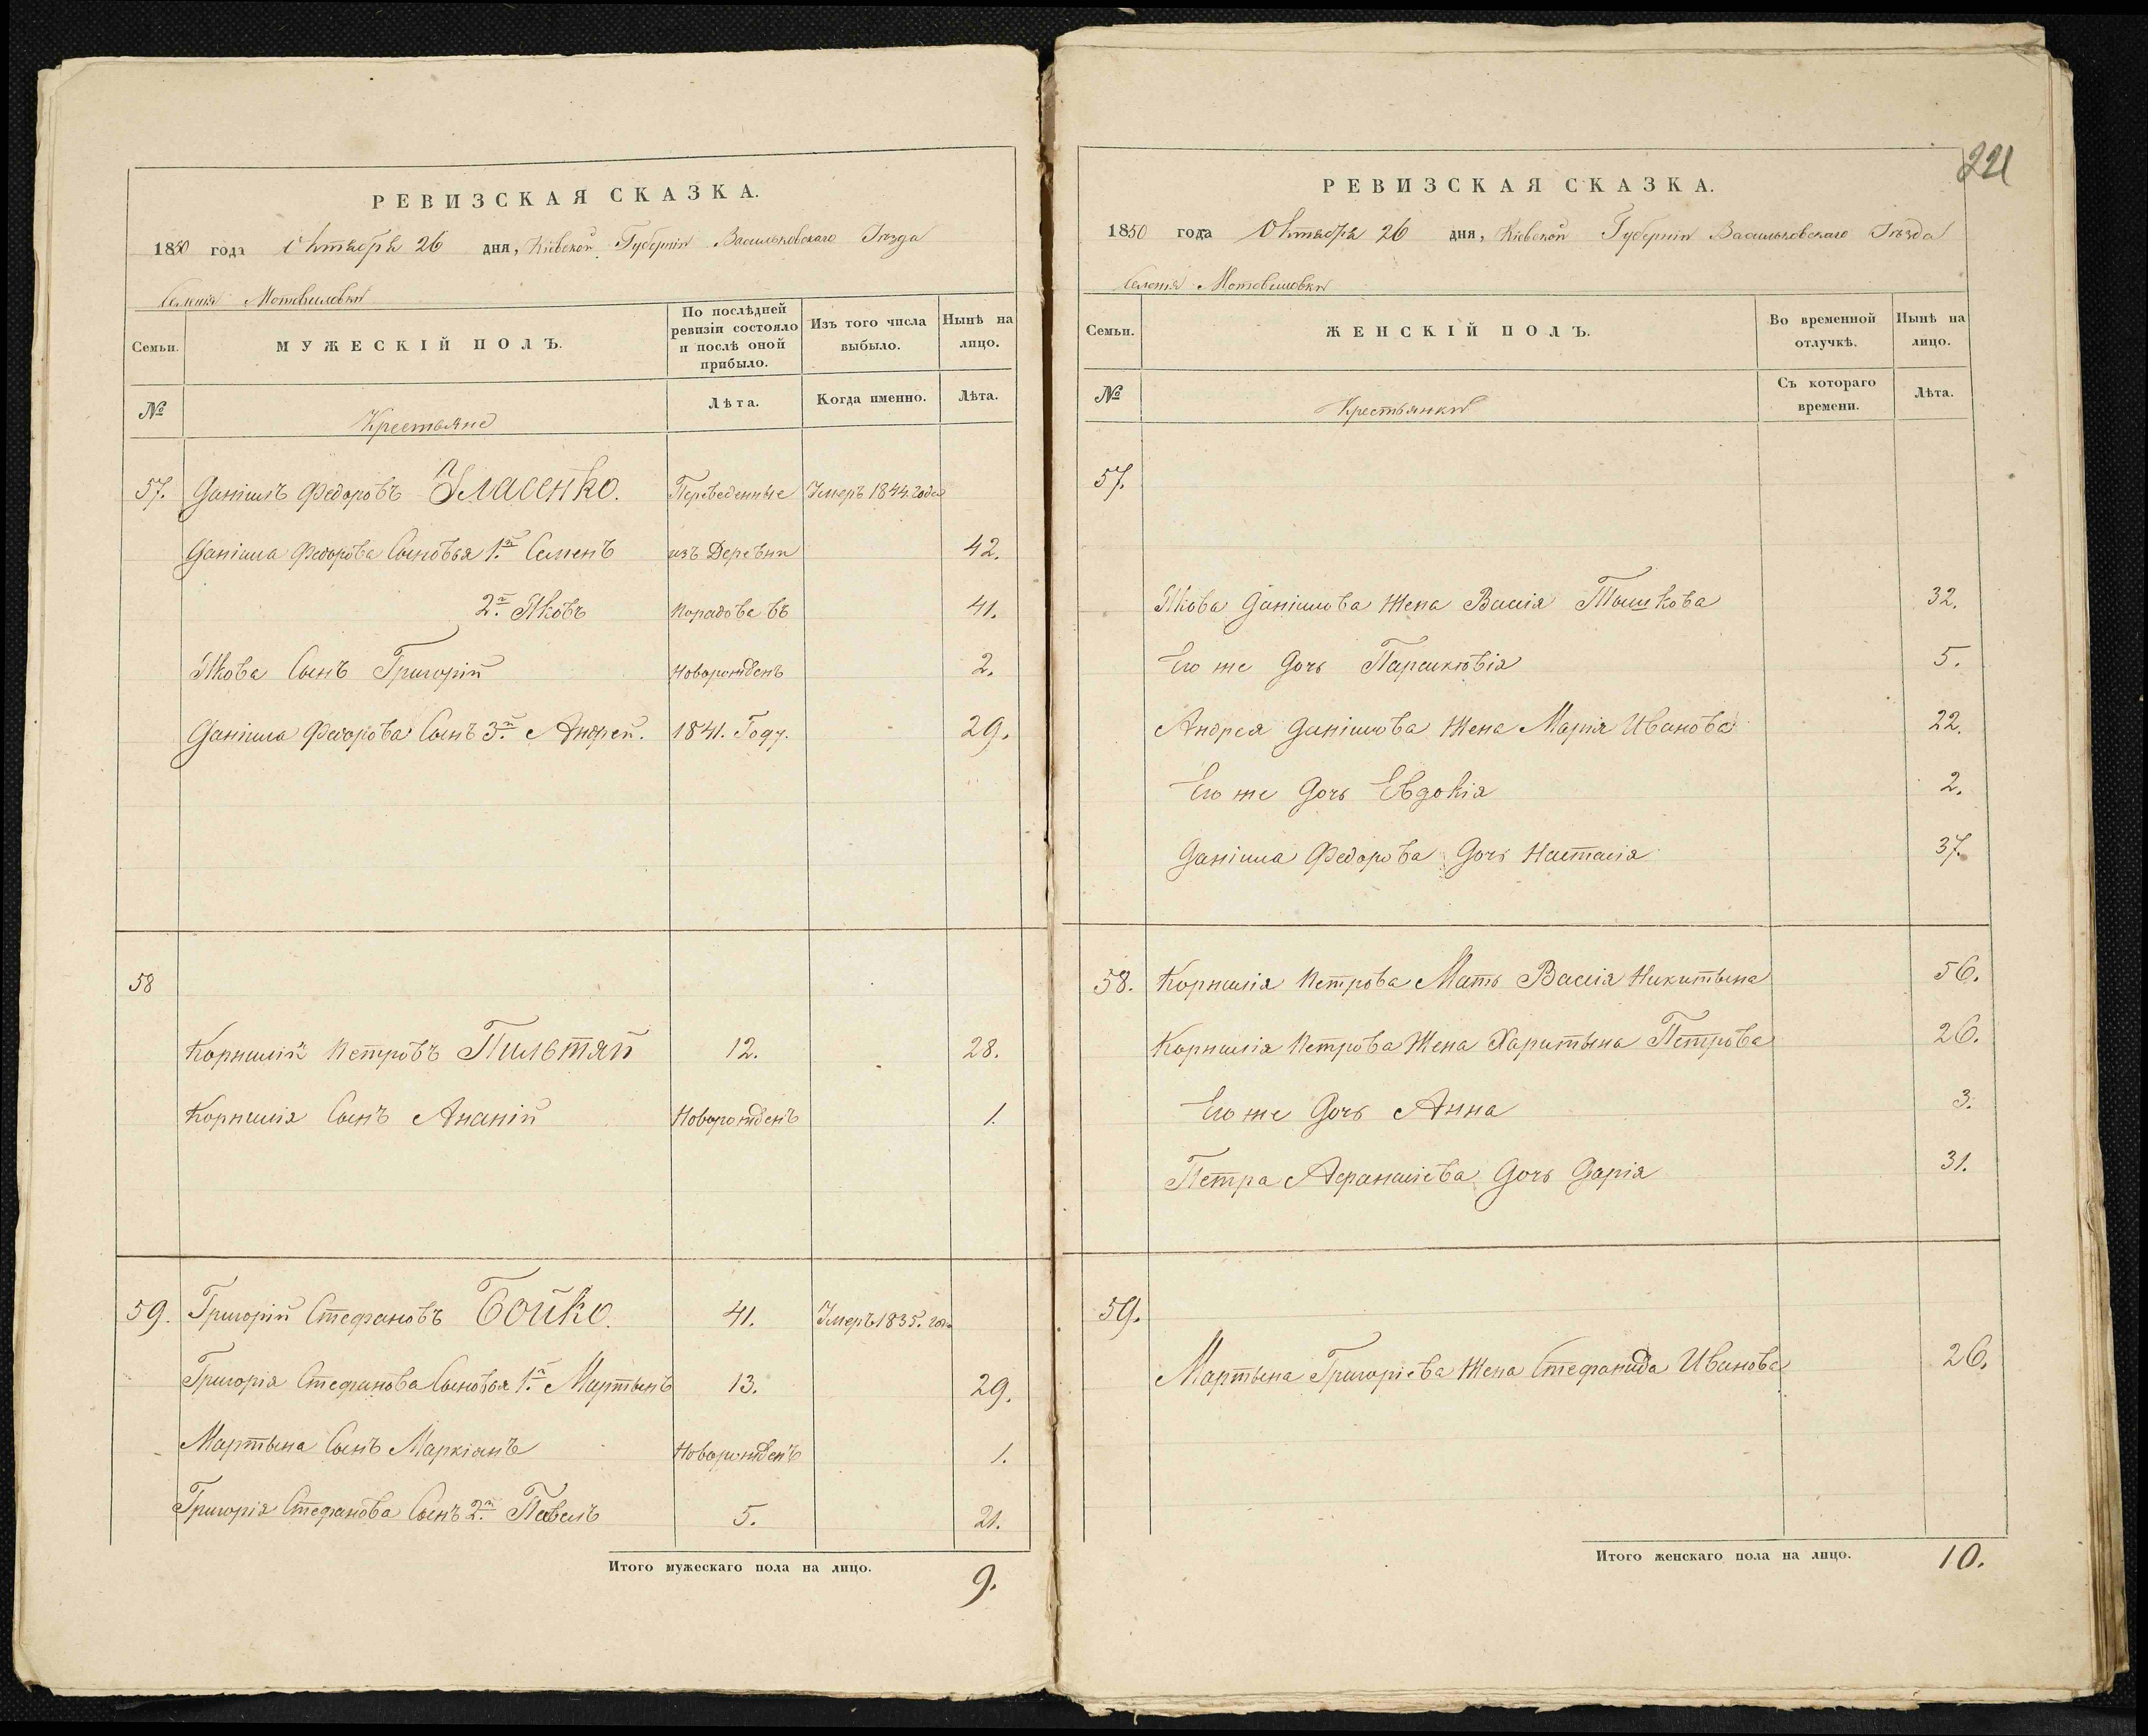 РЕВИЗСКАЯ СКАЗКА.
1850 года Октября 26 дня, Кіевской Губерніи Васильковскаго Уѣзда
Селенія Мотовиловки
Семьи.
МУЖЕСКІЙ ПОЛЪ.
По послѣдней ревизіи состояло и послѣ оной прибыло.
Изъ того числа выбыло.
Нынѣ на лицо.
№
Крестьяне
Лѣта.
Когда именно.
Лѣта.
57. Даніилъ Федоровъ Власенко. Переведенные Умеръ 1844. года
Даніила Федорова Сыновья 1.й Семенъ изъ Деревни 42.
2.й Яковъ 41.
Якова Сынъ Григорій Новорожденъ 2.
Даніила Федорова Сынъ 3.й Андрей. 1841. Году. 29.
58
Корнилій Петровъ Пильтяй 12. 28.
Корнилія Сынъ Ананій Новорожденъ 1.
59. Григорій Стефановъ Бойко. 41. Умеръ 1835. год.
Григорія Стефанова Сыновья 1.й Мартынъ 13. 29.
Мартына Сынъ Маркіянъ Новорожденъ 1.
Григорія Стефанова Сынъ 2.й Павелъ 5. 21.
Итого мужескаго пола на лицо. 9.
221
РЕВИЗСКАЯ СКАЗКА.
1850 года Октября 26 дня, Кіевской Губерніи Васильковскаго Уѣзда
Селенія Мотовиловки
Семьи.
ЖЕНСКІЙ ПОЛЪ.
Во временной отлучкѣ.
Нынѣ на лицо.
№
Крестьянки
Съ котораго времени.
Лѣта.
57.
Якова Даніилова Жена Васія Тышкова 32.
Его же Дочь Параскювія 5.
Андрея Даніилова Жена Марія Иванова 22.
Его же Дочь Евдокія 2.
Даніила Федорова Дочь Настасія 37.
58. Корнилія Петрова Мать Васія Никитына 56.
Корнилія Петрова Жена Харитына Петрова 26.
Его же Дочь Анна 3.
Петра Афанасіева Дочь Дарія 31.
59.
Мартына Григоріева Жена Стефанида Иванова 26.
Итого женскаго пола на лицо. 10.